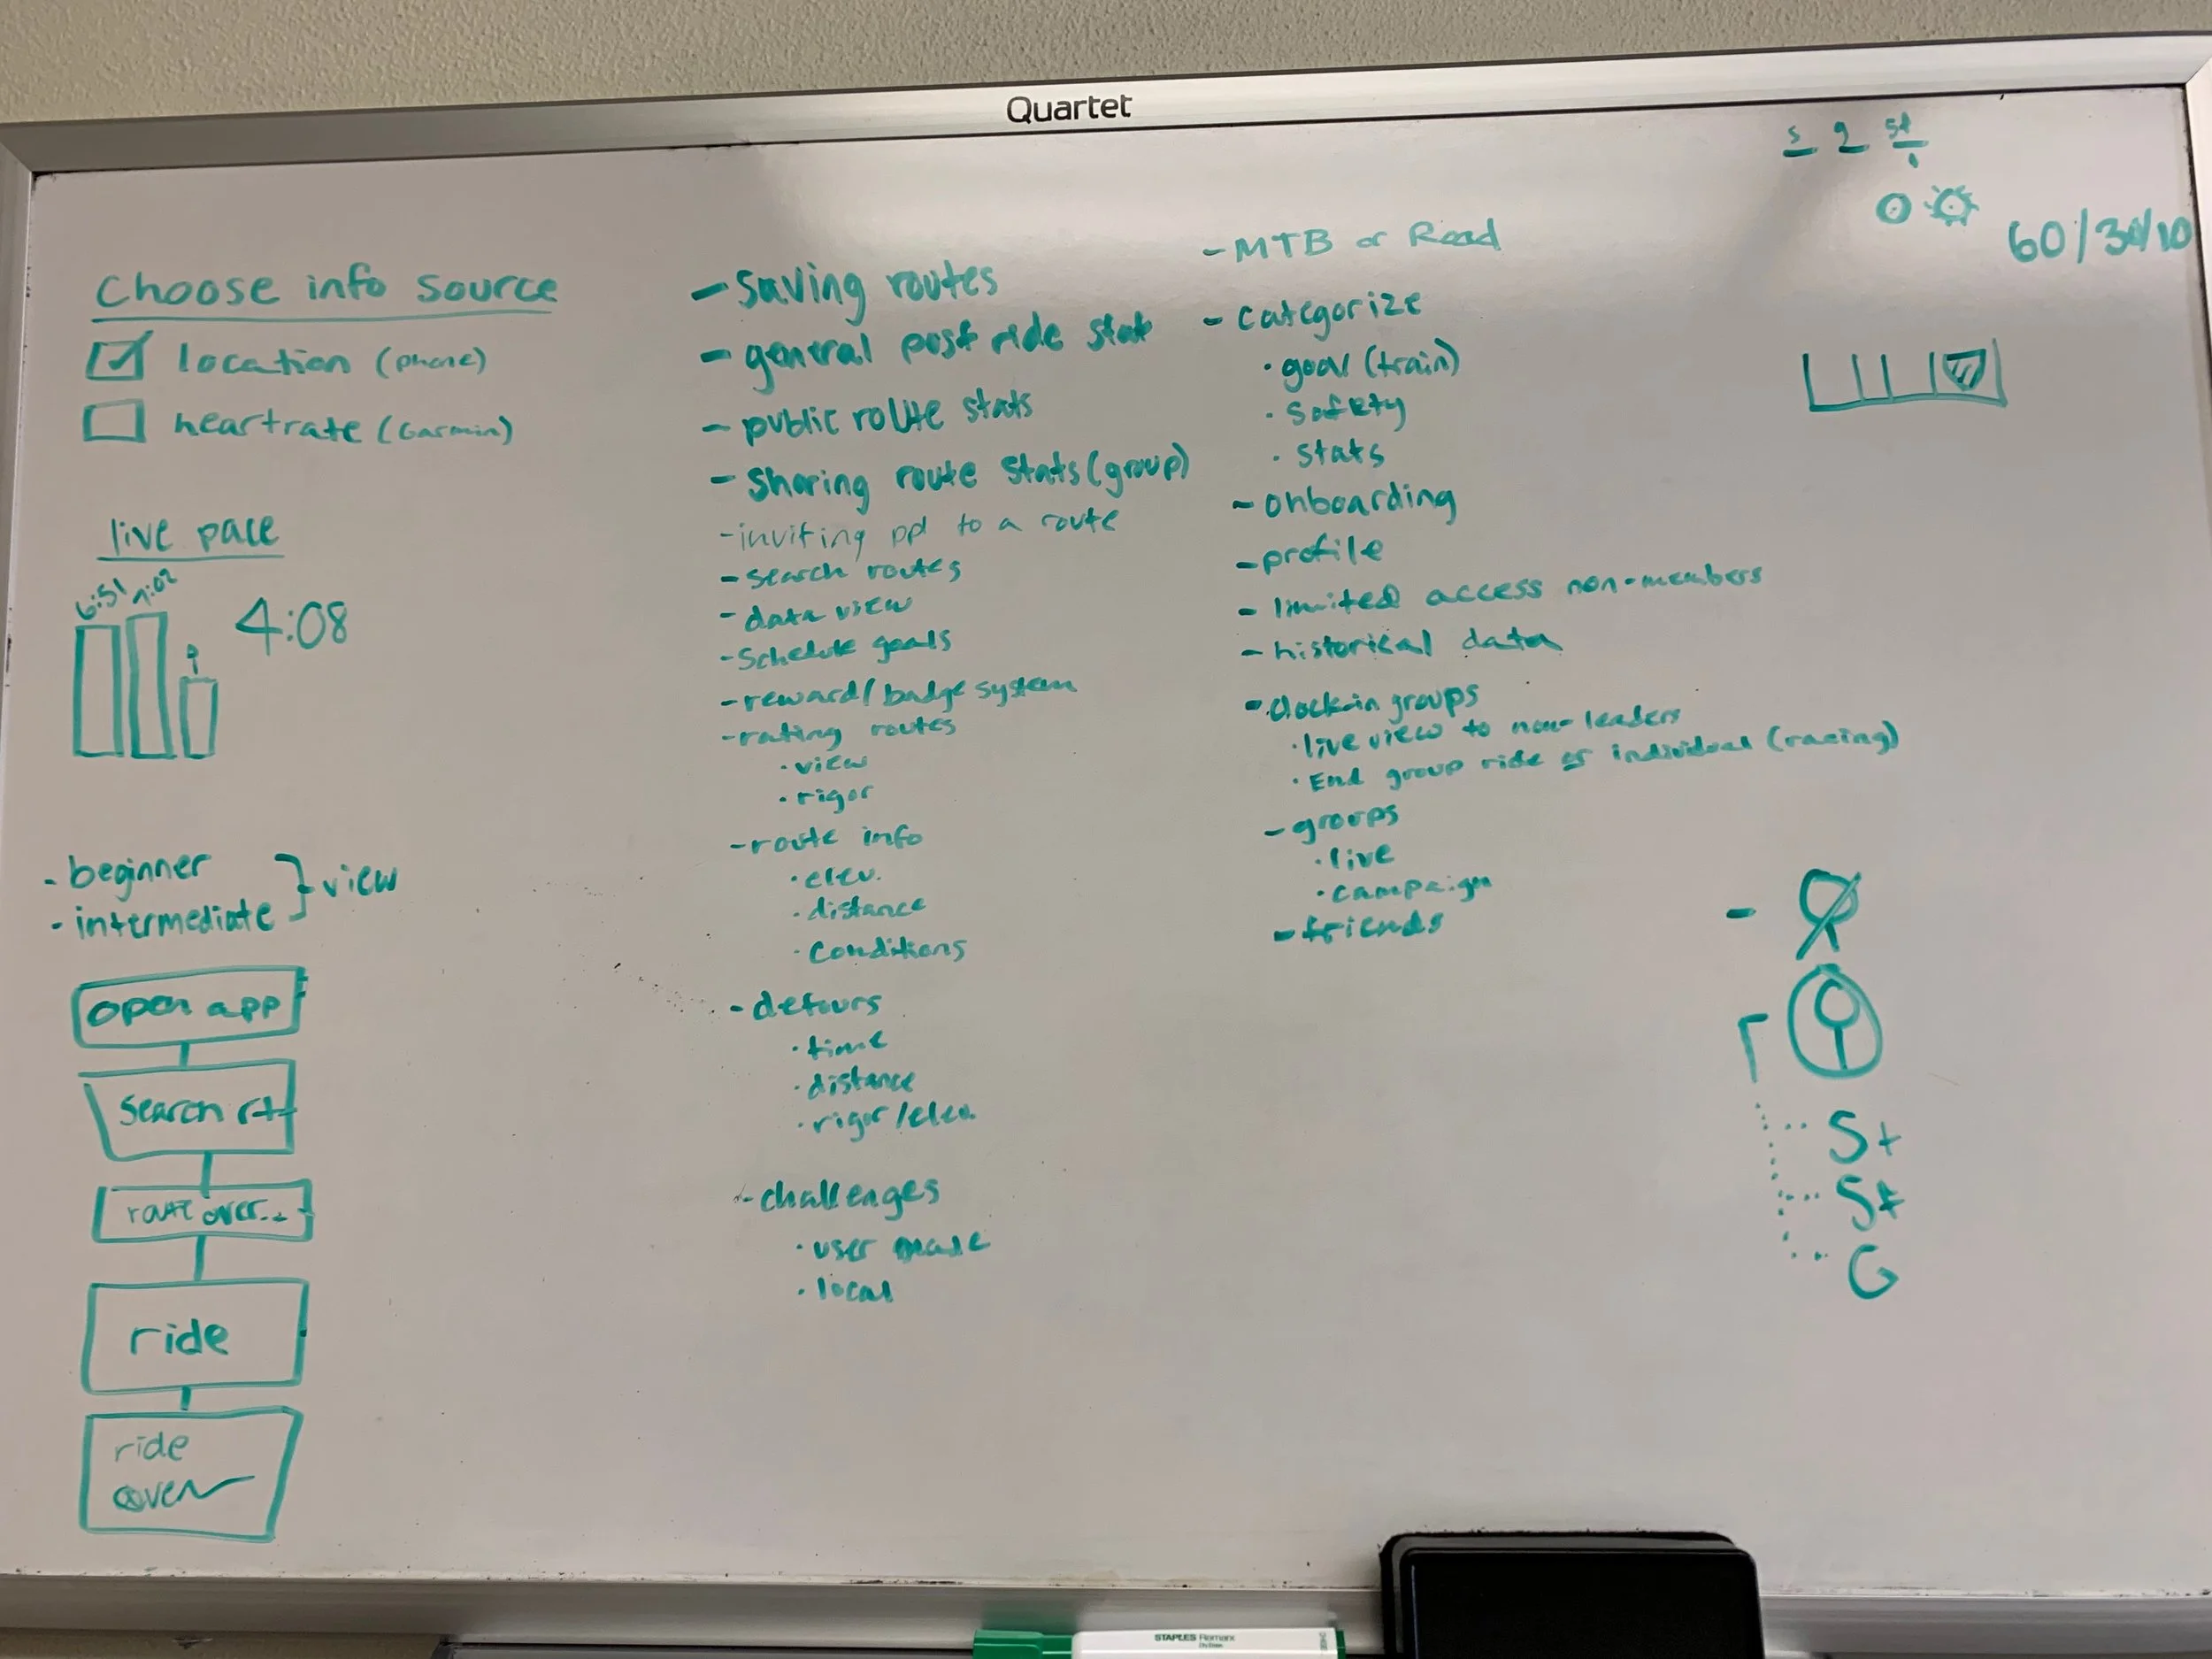 Quartet
Choose info source
location (phone)
heartrate (Garmin)
live pace
6:51 7:02
4:08
- beginner
- intermediate
view
open app
Search rt
route over...
ride
ride
over
- saving routes
- general post ride stats
- public route stats
- Sharing route stats (group)
- inviting ppl to a route
- search routes
- data view
- Schedule goals
- reward/badge system
- rating routes
· view
· rigor
- route info
· elev.
· distance
· Conditions
- detours
· time
· distance
· rigor/elev.
- challenges
· user made
· local
- MTB or Road
- Categorize
· goal (train)
· Safety
· Stats
- onboarding
- profile
- limited access non-members
- historical data
- clock-in groups
· live view to non-leaders
· End group ride or individual (racing)
- groups
· live
· campaign
- friends
60/30/10
St
St
G
STAPLES Remarx